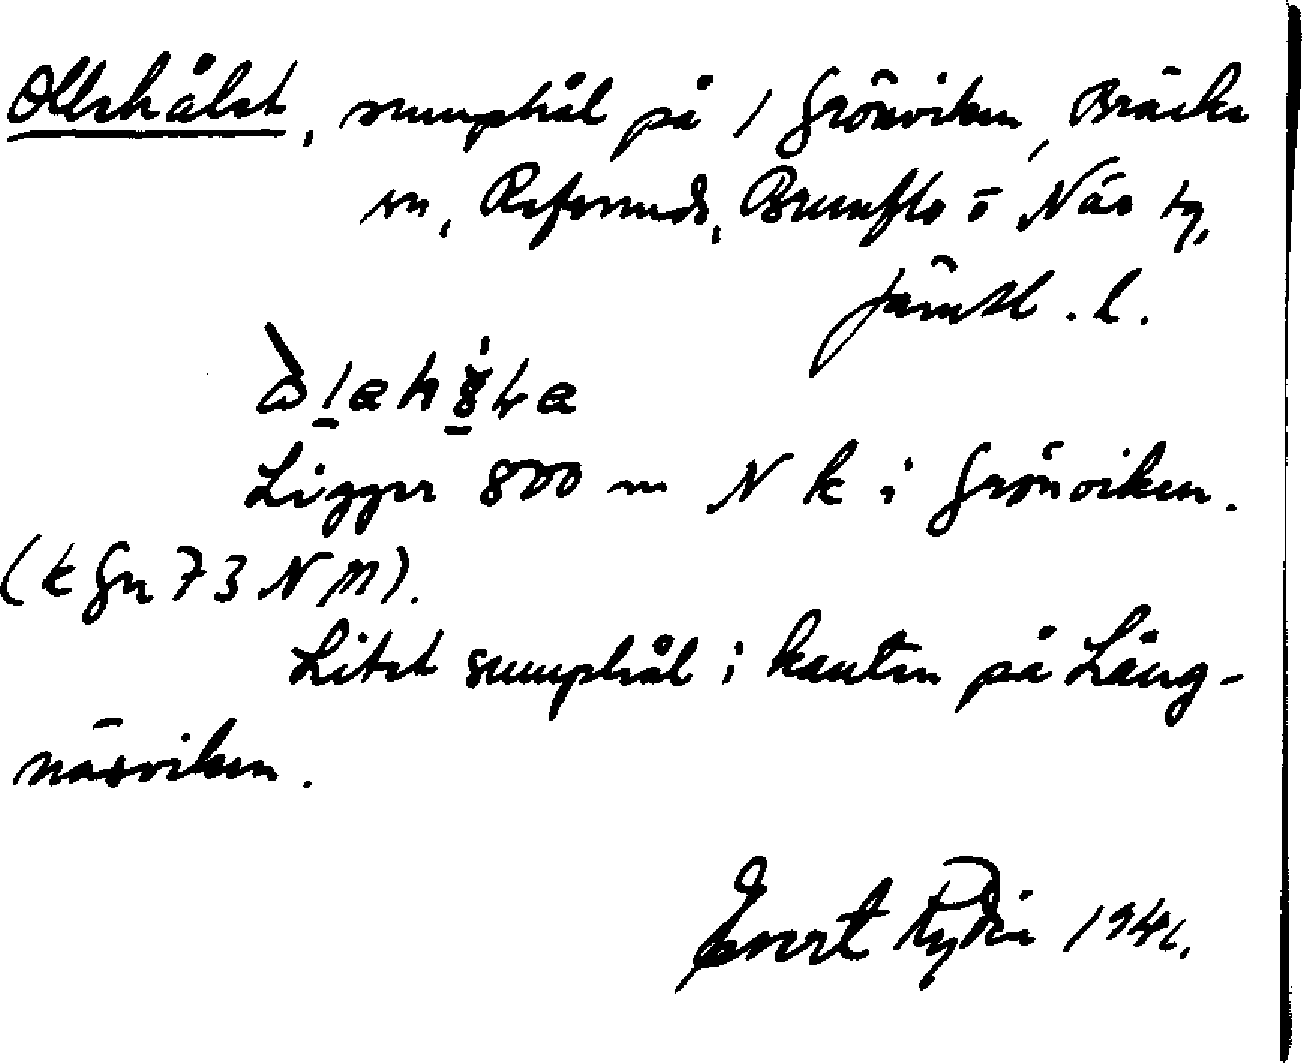 Ollehålet, sumphål på 1 Grönviken, Bräcke
sn, Refsunds, Brunflo o Näs tg,
Jämtl. l.
Ligger 800 m N k i Grönviken.
(k Gn 73 N M).
Litet sumphål i kanten på Lång-
näsviken.
Evert Rydin 1941.